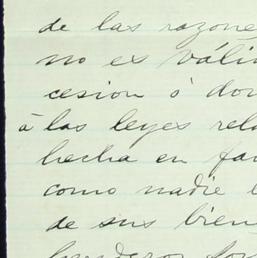 de las razone
no es váli
cesion ó don
á las leyes rela
hecha en fav
como nadie
de sus bien